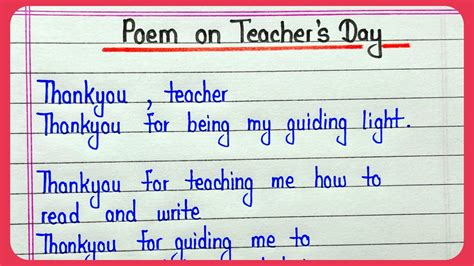 Poem on Teacher's Day
Thankyou , teacher
Thankyou for being my guiding light.
Thankyou for teaching me how to
read and write
Thankyou for guiding me to